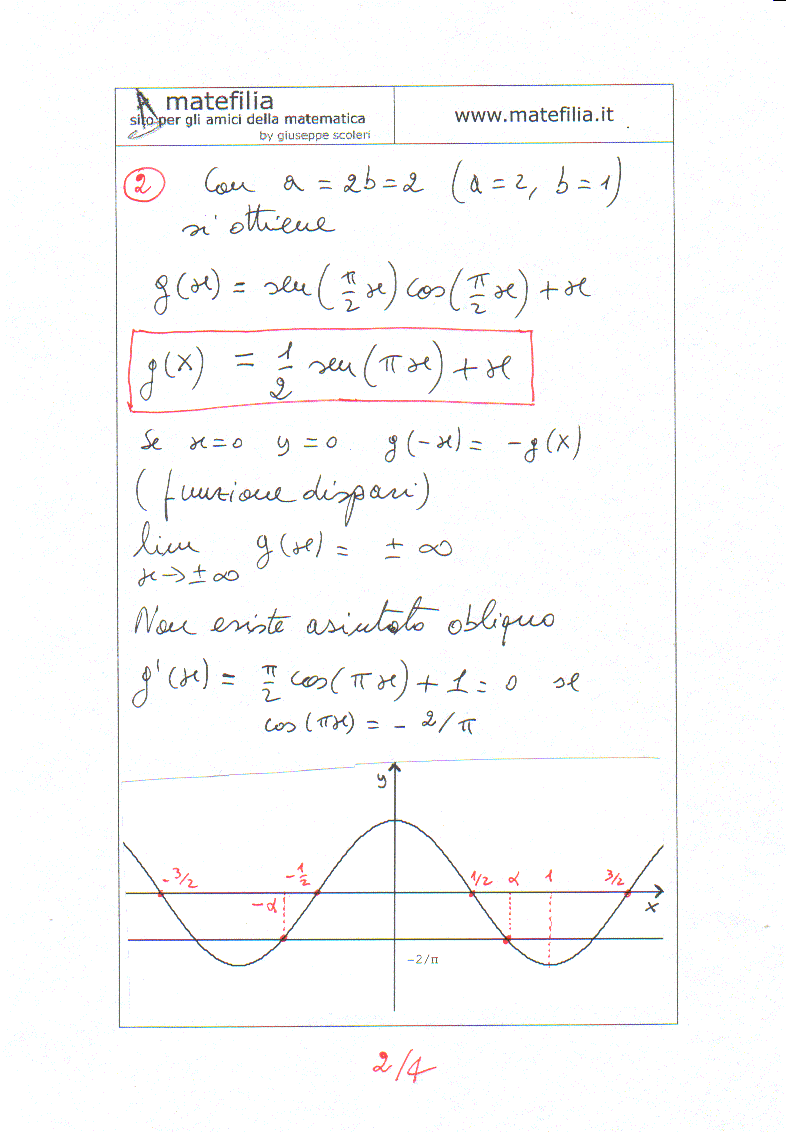 matefilia
sito per gli amici della matematica
by giuseppe scoleri
www.matefilia.it
2 Con a = 2b = 2 (a = 2, b = 1)
si ottiene
g(x) = sen(π/2 x) cos(π/2 x) + x
g(x) = 1/2 sen(πx) + x
Se x=0 y=0 g(-x) = -g(x)
(funzione dispari)
lim g(x) = ± ∞
x→±∞
Non esiste asintoto obliquo
g'(x) = π/2 cos(πx) + 1 = 0 se
cos(πx) = - 2/π
y
-3/2 -1/2 1/2 α 1 3/2
-α x
-2/π
2/4